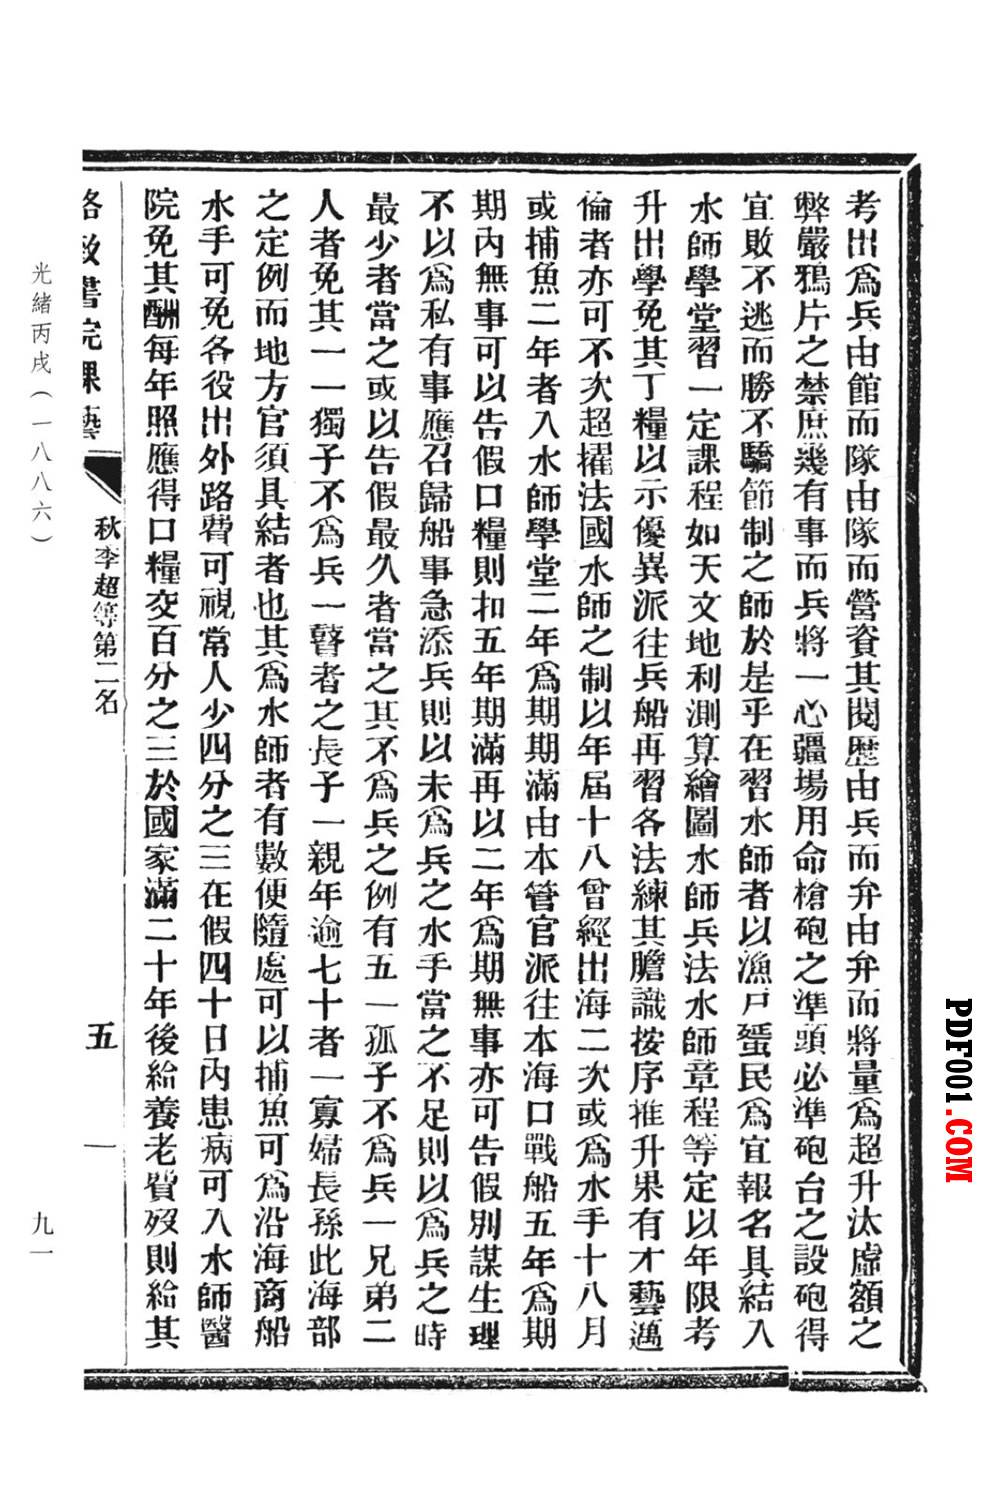 考出爲兵由館而隊由隊而營資其閱歷由兵而弁由弁而將量爲超升汰虛額之
弊嚴鴉片之禁庶幾有事而兵將一心疆場用命槍砲之準頭必準砲台之設砲得
宜敗不逃而勝不驕節制之師於是乎在習水師者以漁戸蜑民爲宜報名具結入
水師學堂習一定課程如天文地利測算繪圖水師兵法水師章程等定以年限考
升出學免其丁糧以示優異派往兵船再習各法練其膽識按序推升果有才藝邁
倫者亦可不次超擢法國水師之制以年屆十八曾經出海二次或爲水手十八月
或捕魚二年者入水師學堂二年爲期期滿由本管官派往本海口戰船五年爲期
期內無事可以告假口糧則扣五年期滿再以二年爲期無事亦可告假別謀生理
不以爲私有事應召歸船事急添兵則以未爲兵之水手當之不足則以爲兵之時
最少者當之或以告假最久者當之其不爲兵之例有五一孤子不爲兵一兄弟二
人者免其一一獨子不爲兵一瞽者之長子一親年逾七十者一寡婦長孫此海部
之定例而地方官須具結者也其爲水師者有數便隨處可以捕魚可爲沿海商船
水手可免各役出外路費可視常人少四分之三在假四十日內患病可入水師醫
院免其酬每年照應得口糧交百分之三於國家滿二十年後給養老費歿則給其
格致書院課藝
秋季超等第二名
五
光緒丙戌(一八八六)
九一
PDF001.COM